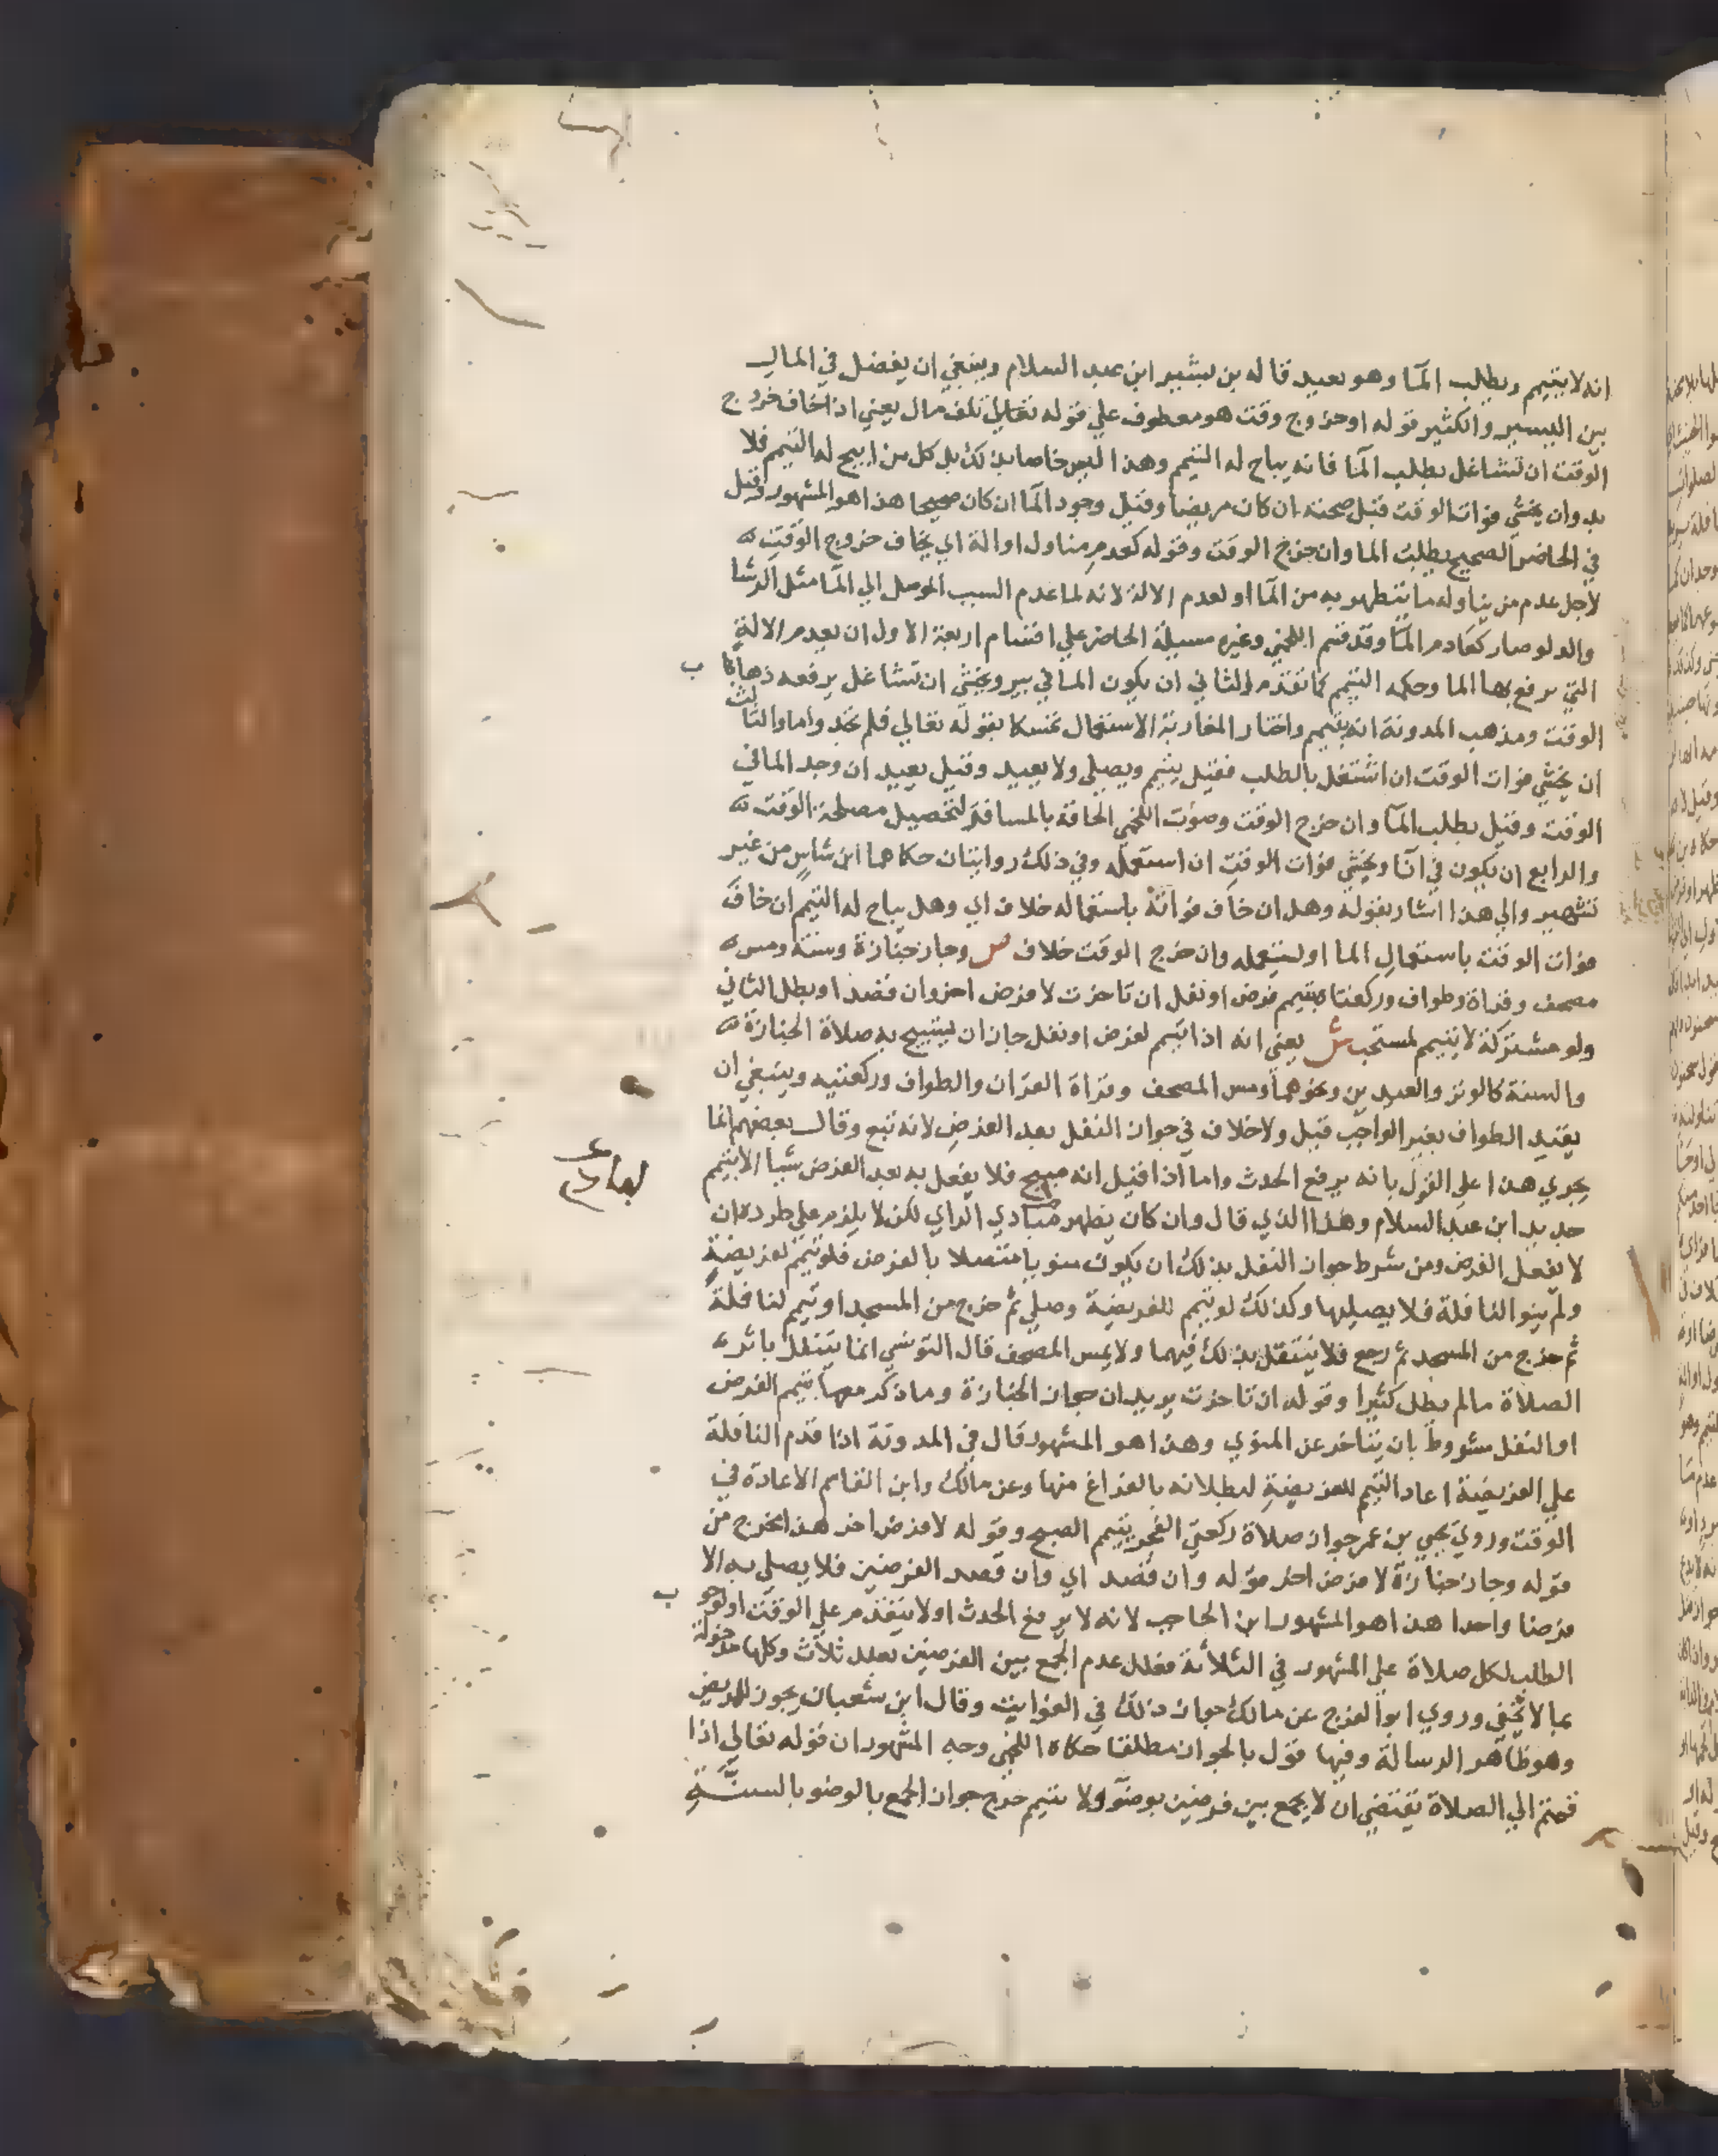 انه لا يتيمم ويطلب المآ وهو بعيد قاله بن بشير ابن عبد السلام وينبغي ان يفصل في المال
بين اليسير والكثير قوله او خروج وقت هو معطوف علي قوله تقابل تلف مال يعني اذا خاف خروج
الوقت ان تشاغل بطلب المآ فانه يباح له التيمم وهذا ليس خاصا بذلك بل كل من ابيح له التيمم فلا
بد وان يخشي فوات الوقت قبل صحته ان كان مريضا وقبل وجود المآ ان كان صحيحا هذا هو المشهور وقيل
في الحاضر الصحيح يطلب الما وان خرج الوقت وقوله كعدم مناول او الة اي يخاف خروج الوقت
لاجل عدم من يناوله ما يتطهر به من المآ او لعدم الالة لانه لما عدم السبب الموصل الي المآ مثل الرشا
والدلو صار كعادم المآ وقد قسم اللخمي وغيره مسيلة الحاضر علي اقسام اربعة الاول ان يعدم الالة
التي يرفع بها الما وحكمه التيمم كما تقدم والثاني ان يكون الما في بير ويخشي ان تشاغل برفعه ذهاب
الوقت ومذهب المدونة انه يتيمم واختار المغاربة الاستعمال تمسكا بقوله تعالي فلم تجدوا ما والثالث
ان يخشي فوات الوقت ان اشتغل بالطلب فقيل يتيمم ويصلي ولا يعيد وقيل يعيد ان وجد الما في
الوقت وقيل يطلب المآ وان خرج الوقت وصوب اللخمي الحاقه بالمسافر لتحصيل مصلحة الوقت
والرابع ان يكون في انآ ويخشي فوات الوقت ان استعمله وفي ذلك روايتان حكاهما ابن شاس من غير
تشهير والي هذا اشار بقوله وهل ان خاف فواته باستعماله خلاف اي وهل يباح له التيمم ان خاف
فوات الوقت باستعمال الما او يستعمله وان خرج الوقت خلاف ص وجاز جنازة وسنة ومس
مصحف وقراة وطواف وركعتاه بتيمم فرض او نفل ان تاخرت لا فرض اخر وان قصدا وبطل الثاني
ولو مشتركة لا بتيمم لمستحب ش يعني انه اذا تيمم لفرض او نفل جاز ان يستبيح به صلاة الجنازة
والسنة كالوتر والعيدين ونحوهما ومس المصحف وقراة القران والطواف وركعتيه وينبغي ان
يقيد الطواف بغير الواجب قيل ولا خلاف في جواز النفل بعد الفرض لانه تبع وقال بعضهم انما
يجري هذا علي القول بانه يرفع الحدث واما اذا قيل انه مبيح فلا يفعل به بعد الفرض شيا الا بتيمم
جديد ابن عبد السلام وهذا الذي قال وان كان يظهر مبادي الراي لكن لا يلزم علي طرده ان
لا يفعل الفرض ومن شرط جواز النفل بذلك ان يكون منويا متصلا بالفرض فلو تيمم لفريضة
ولم ينو النافلة فلا يصليها وكذلك لو تيمم للفريضة وصلي ثم خرج من المسجد او تيمم لنافلة
ثم خرج من المسجد ثم رجع فلا يتنفل بذلك فيهما ولا يمس المصحف قال التونسي انما يتنفل باثر
الصلاة ما لم يطل كثيرا وقوله ان تاخرت يريد ان جواز الجنازة وما ذكر معها بتيمم الفرض
او النفل مشروط بان يتاخر عن المنوي وهذا هو المشهور قال في المدونة اذا قدم النافلة
علي الفريضة اعاد التيمم للفريضة لبطلانه بالفراغ منها وعن مالك وابن القاسم الاعادة في
الوقت وروي يحيي بن عمر جواز صلاة ركعتي الفجر بتيمم الصبح وقوله لا فرض اخر هذا مخرج من
قوله وجاز جنازة لا فرض اخر قوله وان قصد اي وان قصد الفرضين فلا يصلي به الا
فرضا واحدا هذا هو المشهور ابن الحاجب لانه لا يرفع الحدث او لا يتقدم علي الوقت او لوجوب
الطلب لكل صلاة علي المشهور في الثلاثة فعلل عدم الجمع بين الفرضين بعلل ثلاث وكلها مدخولة
بما لا يخفي وروي ابو الفرج عن مالك جواز ذلك في الفوايت وقال ابن شعبان يجوز للمريض
وهو ظاهر الرسالة وفيها قول بالجواز مطلقا حكاه اللخمي وجه المشهور ان قوله تعالي اذا
قمتم الي الصلاة يقتضي ان لا يجمع بين فرضين بوضوٓ ولا تيمم خرج جواز الجمع بالوضو بالسنة